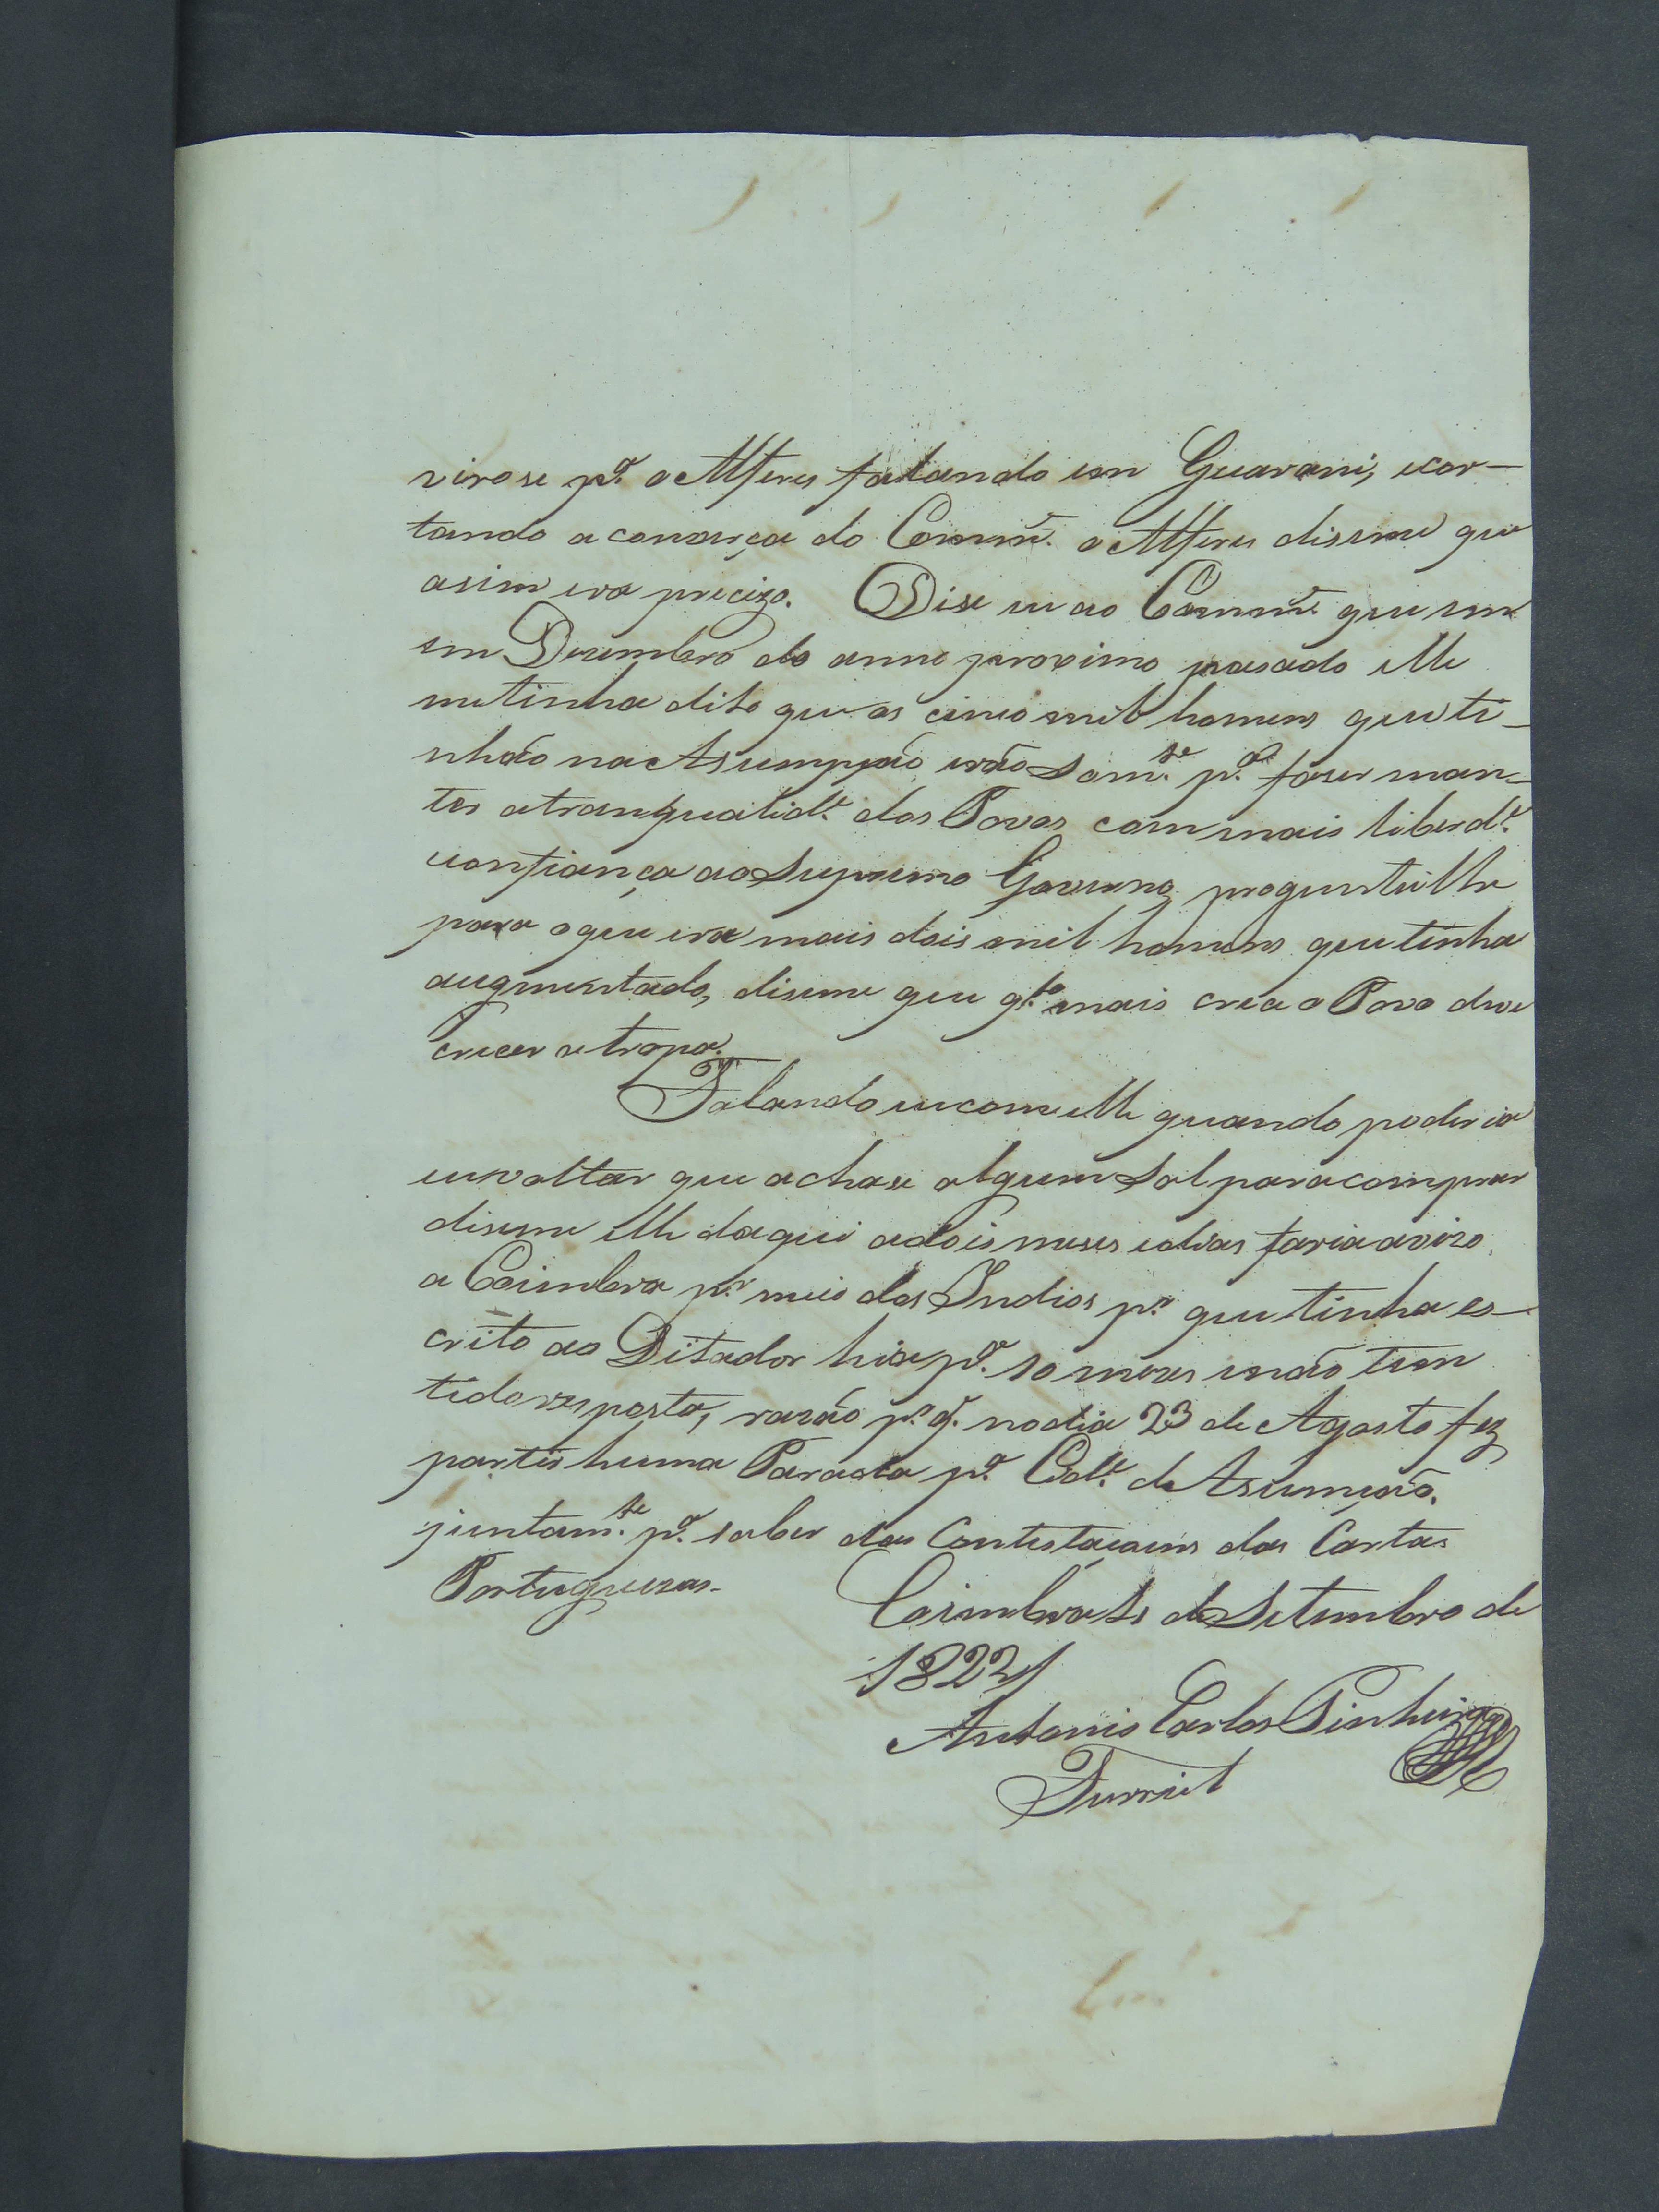 virose p.ª o Alferes falando em Guarani, e cor-
tando a conversa do Comm.e o Alferes diseme que
asim era precizo. Dise eu ao Comm.e que em
em Dezembro do anno proximo pasado elle
me tinha dito que os cinco mil homens que ti-
nhão na Asumpção erão som.te p.ª faser man-
ter a tranqualid.e dos Povos com mais liberd.e
e confiança ao Supremo Governo, preguntei lhe
para o que era mais dois mil homens que tinha
augmentado, diseme que q.to mais crece o Povo deve
crecer a tropa.
Falando eu com elle quando poderia
eu voltar que achase algum Sal para comprar
diseme elle daqui a dois meses e dias faria avizo
a Coimbra p.r meio dos Indios p.r que tinha es-
crito ao Ditador hia p.ª 10 mezes e não tem
tido resposta, razão p.r q. no dia 23 de Agosto fez
partir huma Parada p.ª Cid.e de Asumção,
juntam.te p.ª saber das Contestaçoens das Cartas
Portuguezas.
Coimbra 1º de Setembro de
1822
Antonio Carlos Pinheiro
Furriel